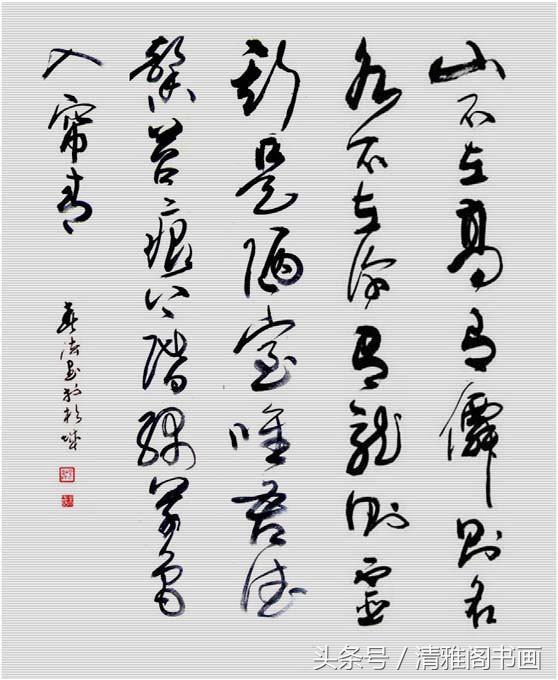 山不在高有僊则名
水不在深有龍则靈
斯是陋室唯吾德
馨苔痕上階绿草色
入帘青
头条号 / 清雅阁书画